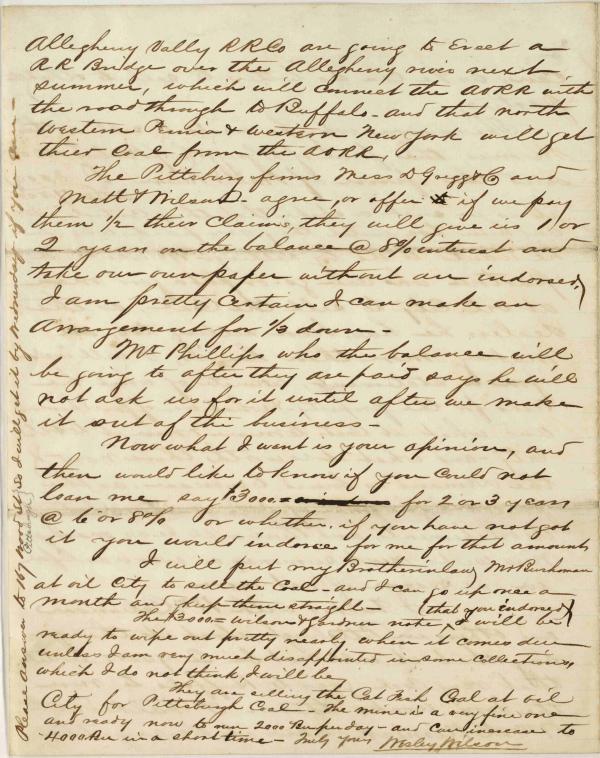 Allegheny Vally RRCo are going to Erect a
RR Bridge over the Allegheny river next
summer, which will connect the AVRR with
the road through to Buffalo - and that north
western Penna & western New York will get
thier Coal from the AVRR,
The Pittsburg firms Mess D Gregg & Co and
Matt & Wilson - agree, or offer if we pay
them 1/2 their claims, they will give us 1 or
2 years on the balance @ 8% interest and
take our own paper without an indorser,
I am pretty certain I can make an
Arrangement for 1/3 down -
Mr Phillips who the balance will
be going to after they are paid says he will
not ask us for it until after we make
it out of the business -
Now what I want is your opinion, and
then would like to know if you could not
loan me say $3000 = for 2 or 3 years
@ 6 or 8% or whether, if you have not got
it you would indorse for me for that amount
I will put my Brotherinlaw Mr Buchanan
at oil City to sell the Coal - and I can go up once a
month and keep them straight - (that you indorsed)
The $3000 = Wilson & Gardner note, I will be
ready to wipe out pretty nearly when it comes due
unless I am very much disappointed in some collections,
which I do not think I will be
They are selling the Cat Fish Coal at oil
City for Pittsburgh Coal - The mine is a very fine one
and ready now to run 2000 Bu per day - and can increase to
4000 Bu in a short time - Truly Yours Wesley Wilson
Please answer to 167 Wood St, so I will get it by Wednesday if you can -
Pittsburgh